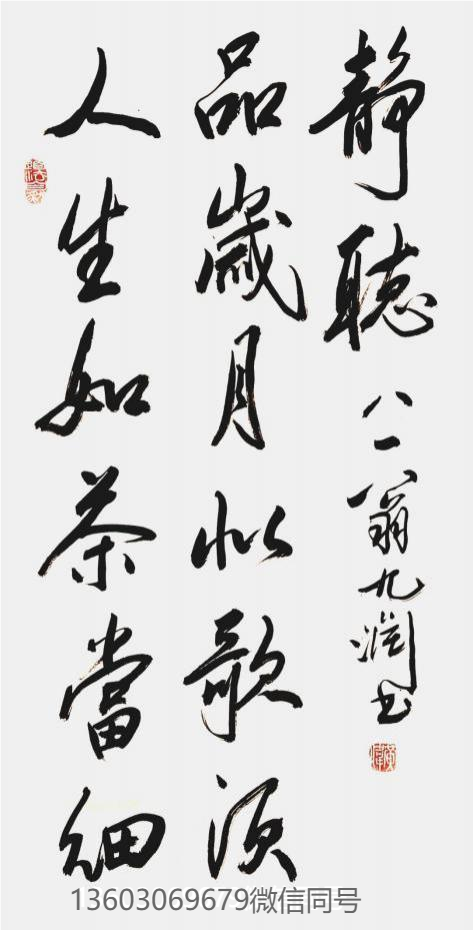 人生如茶當細
品歲月似歌須
静聽
八一翁九潤书
13603069679微信同号